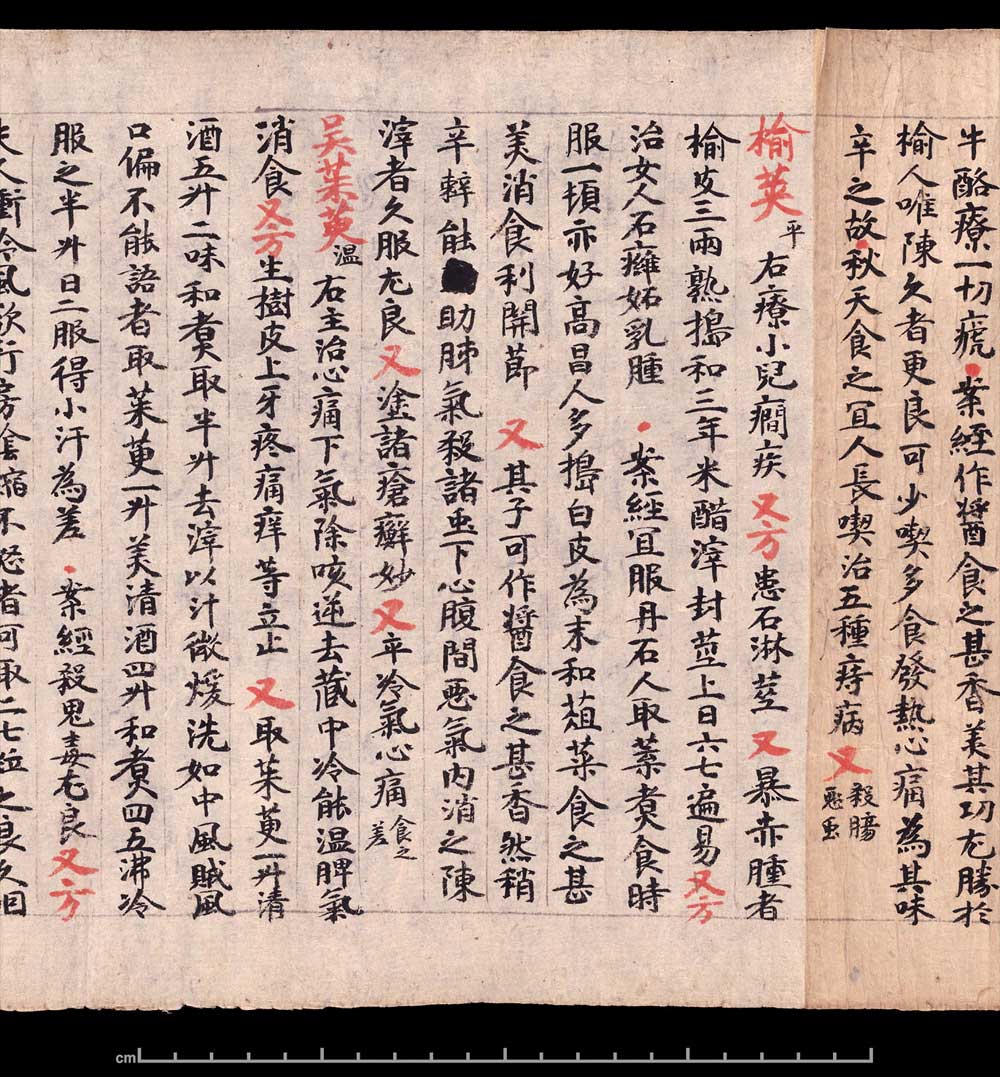 牛酪療一切瘲案經作醬食之甚香美其功尤勝於
榆人唯陳久者更良可少喫多食發熱心痛為其味
辛之故秋天食之冝人長喫治五種痔病又殺腸惡虫
榆莢平右療小兒癇疾又方患石淋莖又暴赤腫者
榆皮三兩熟搗和三年米醋滓封莖上日六七遍易又方
治女人石癰妬乳腫案經冝服丹石人取葉煮食時
服一頓亦好高昌人多搗白皮為末和菹菜食之甚
美消食利開節又其子可作醬食之甚香然稍
辛辢能助肺氣殺諸虫下心腹間惡氣內消之陳
滓者久服尤良又塗諸瘡癬妙又卒冷氣心痛食之差
吴茱萸温右主治心痛下氣除咳逆去蔵中冷能温脾氣
消食又方生樹皮上牙疼痛痒等立止又取茱萸一升清
酒五升二味和煮取半升去滓以汁微煖洗如中風賊風
口偏不能語者取茱萸一升美清酒四升和煮四五沸冷
服之半升日二服得小汗為差案經殺鬼毒尤良又方
夫人衝冷風欲行房陰縮不怒者可取二七粒之良久咽